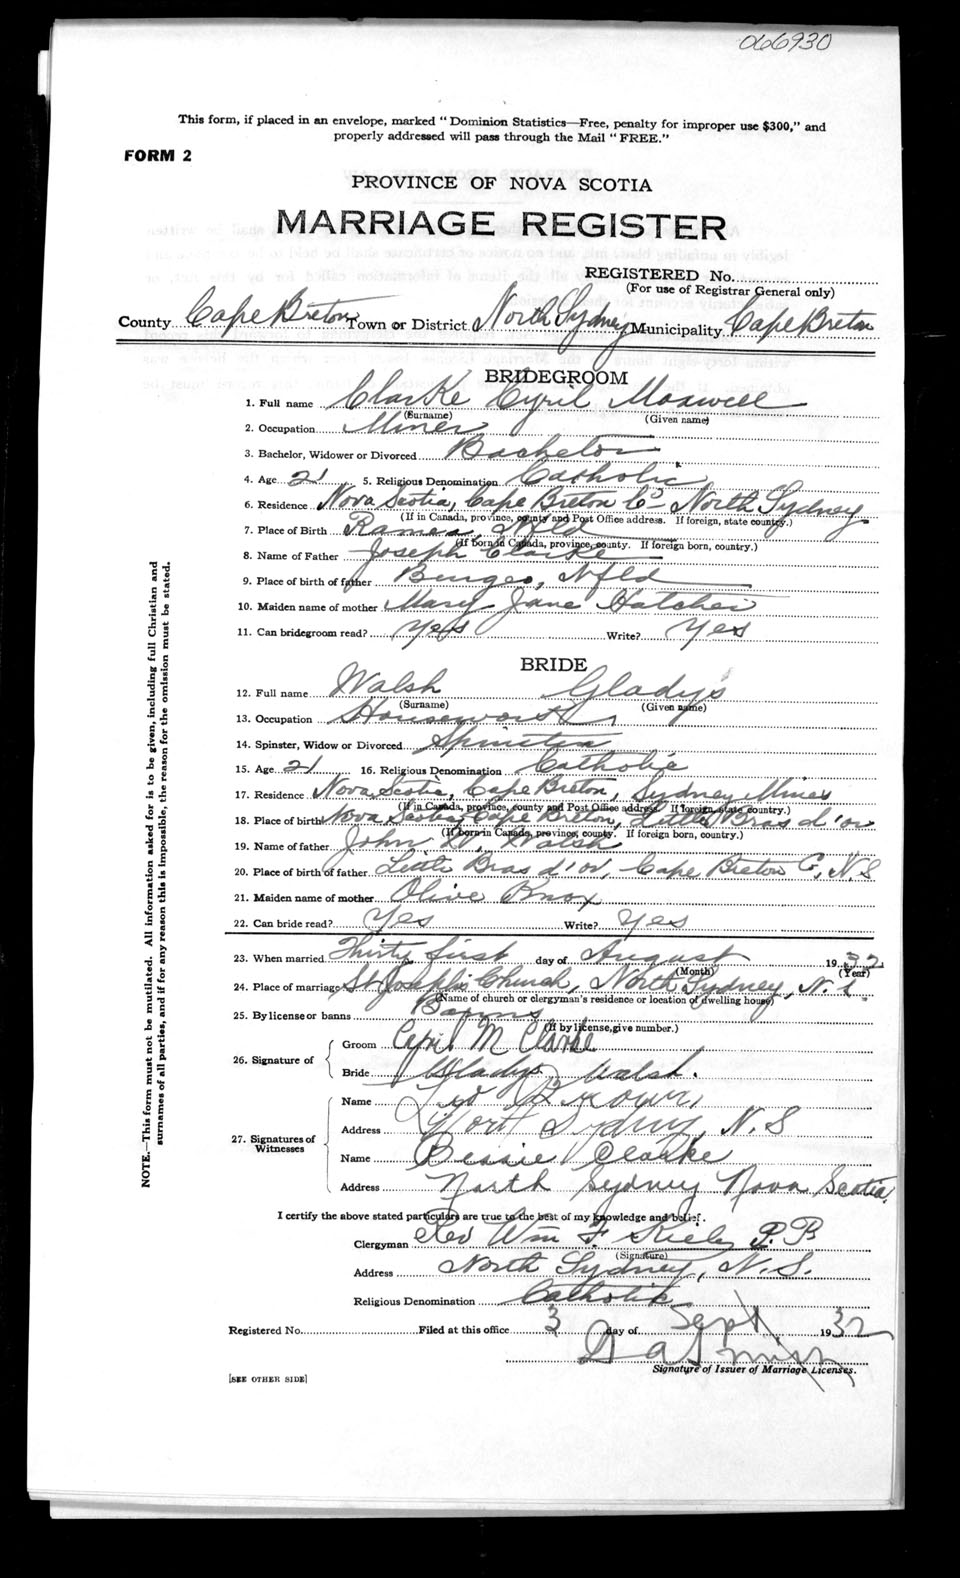 066930
This form, if placed in an envelope, marked "Dominion Statistics—Free, penalty for improper use $300," and
properly addressed will pass through the Mail "FREE."
FORM 2
PROVINCE OF NOVA SCOTIA
MARRIAGE REGISTER
REGISTERED No.
(For use of Registrar General only)
County Cape Breton Town or District North Sydney Municipality Cape Breton
BRIDEGROOM
1. Full name Clarke Cyril Maxwell
(Surname) (Given name)
2. Occupation Miner
3. Bachelor, Widower or Divorced Bachelor
4. Age 21 5. Religious Denomination Catholic
6. Residence Nova Scotia, Cape Breton Co. North Sydney
(If in Canada, province, county and Post Office address. If foreign, state country.)
7. Place of Birth Ramea, Nfld
(If born in Canada, province, county. If foreign born, country.)
8. Name of Father Joseph Clarke
9. Place of birth of father Burgeo, Nfld
10. Maiden name of mother Mary Jane Hatcher
11. Can bridegroom read? yes Write? yes
BRIDE
12. Full name Walsh Gladys
(Surname) (Given name)
13. Occupation Housework
14. Spinster, Widow or Divorced Spinster
15. Age 21 16. Religious Denomination Catholic
17. Residence Nova Scotia, Cape Breton, Sydney Mines
(If in Canada, province, county and Post Office address. If foreign, state country.)
18. Place of birth Nova Scotia, Cape Breton, Little Bras d'or
(If born in Canada, province, county. If foreign born, country.)
19. Name of father John W. Walsh
20. Place of birth of father Little Bras d'or, Cape Breton Co, N.S
21. Maiden name of mother Olive Knox
22. Can bride read? Yes Write? Yes
23. When married Thirty first day of August 1932
(Month) (Year)
24. Place of marriage St Josephs Church, North Sydney, N.S.
(Name of church or clergyman's residence or location of dwelling house)
25. By license or banns Banns
(If by license, give number.)
26. Signature of Groom Cyril M Clarke
Bride Gladys Walsh.
27. Signatures of Witnesses Name Brown
Address North Sydney, N.S
Name Bessie Clarke
Address North Sydney Nova Scotia.
I certify the above stated particulars are true to the best of my knowledge and belief.
Clergyman Rev Wm F. Kiely P.P
(Signature)
Address North Sydney, N.S.
Religious Denomination Catholic
Registered No. Filed at this office 3 day of Sept 1932
Signature of Issuer of Marriage Licenses.
[SEE OTHER SIDE]
NOTE.—This form must not be mutilated. All information asked for is to be given, including full Christian and
surnames of all parties, and if for any reason this is impossible, the reason for the omission must be stated.